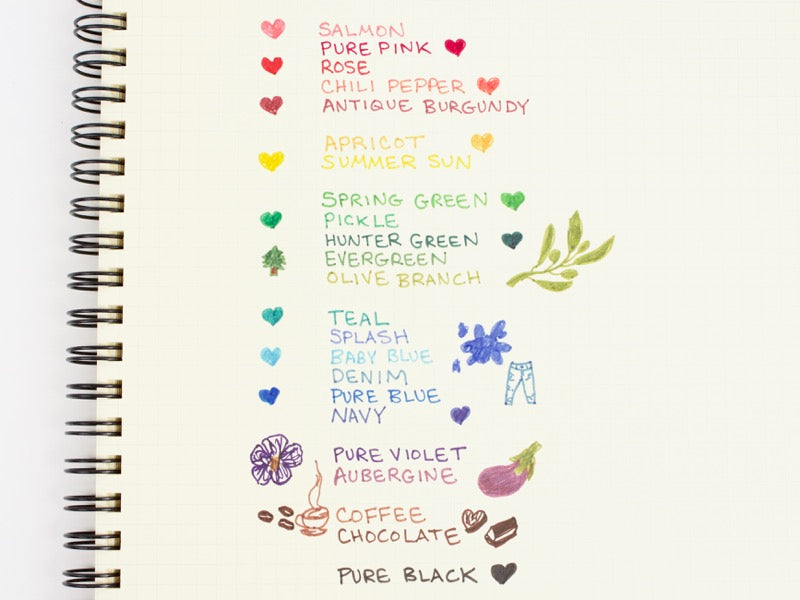 SALMON
PURE PINK
ROSE
CHILI PEPPER
ANTIQUE BURGUNDY
APRICOT
SUMMER SUN
SPRING GREEN
PICKLE
HUNTER GREEN
EVERGREEN
OLIVE BRANCH
TEAL
SPLASH
BABY BLUE
DENIM
PURE BLUE
NAVY
PURE VIOLET
AUBERGINE
COFFEE
CHOCOLATE
PURE BLACK